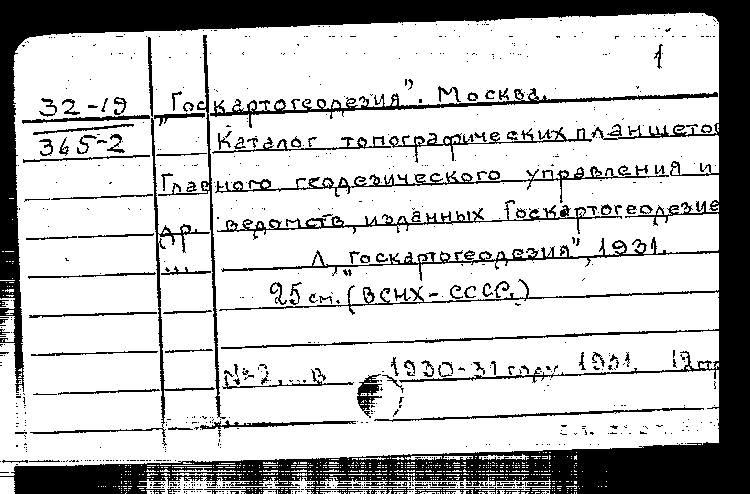 1
32-19 "Госкартогеодезия". Москва.
365-2 Каталог топографических планшетов
Главного геодезического управления и
др. ведомств, изданных Госкартогеодезие
... Л, "Госкартогеодезия", 1931.
25 см. (ВСНХ-СССР.)
№2 ... в 1930-31 году. 1931. 12 стр